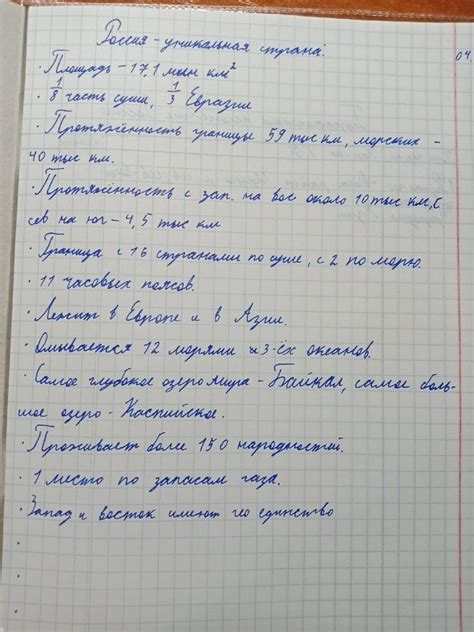 Россия - уникальная страна.
04.
· Площадь - 17,1 млн км²
· 1/8 часть суши, 1/3 Евразии
· Протяжённость границы 59 тыс км, морских -
40 тыс км.
· Протяжённость с зап. на вос около 10 тыс км, с
сев на юг - 4,5 тыс км
· Граница с 16 странами по суше, с 2 по морю.
· 11 часовых поясов.
· Лежит в Европе и в Азии.
· Омывается 12 морями из 3-ёх океанов.
· Самое глубокое озеро мира - Байкал, самое боль-
шое озеро - Каспийское.
· Проживает боле 150 народностей.
· 1 место по запасам газа.
· Запад и восток имеют гео единство
·
·
·